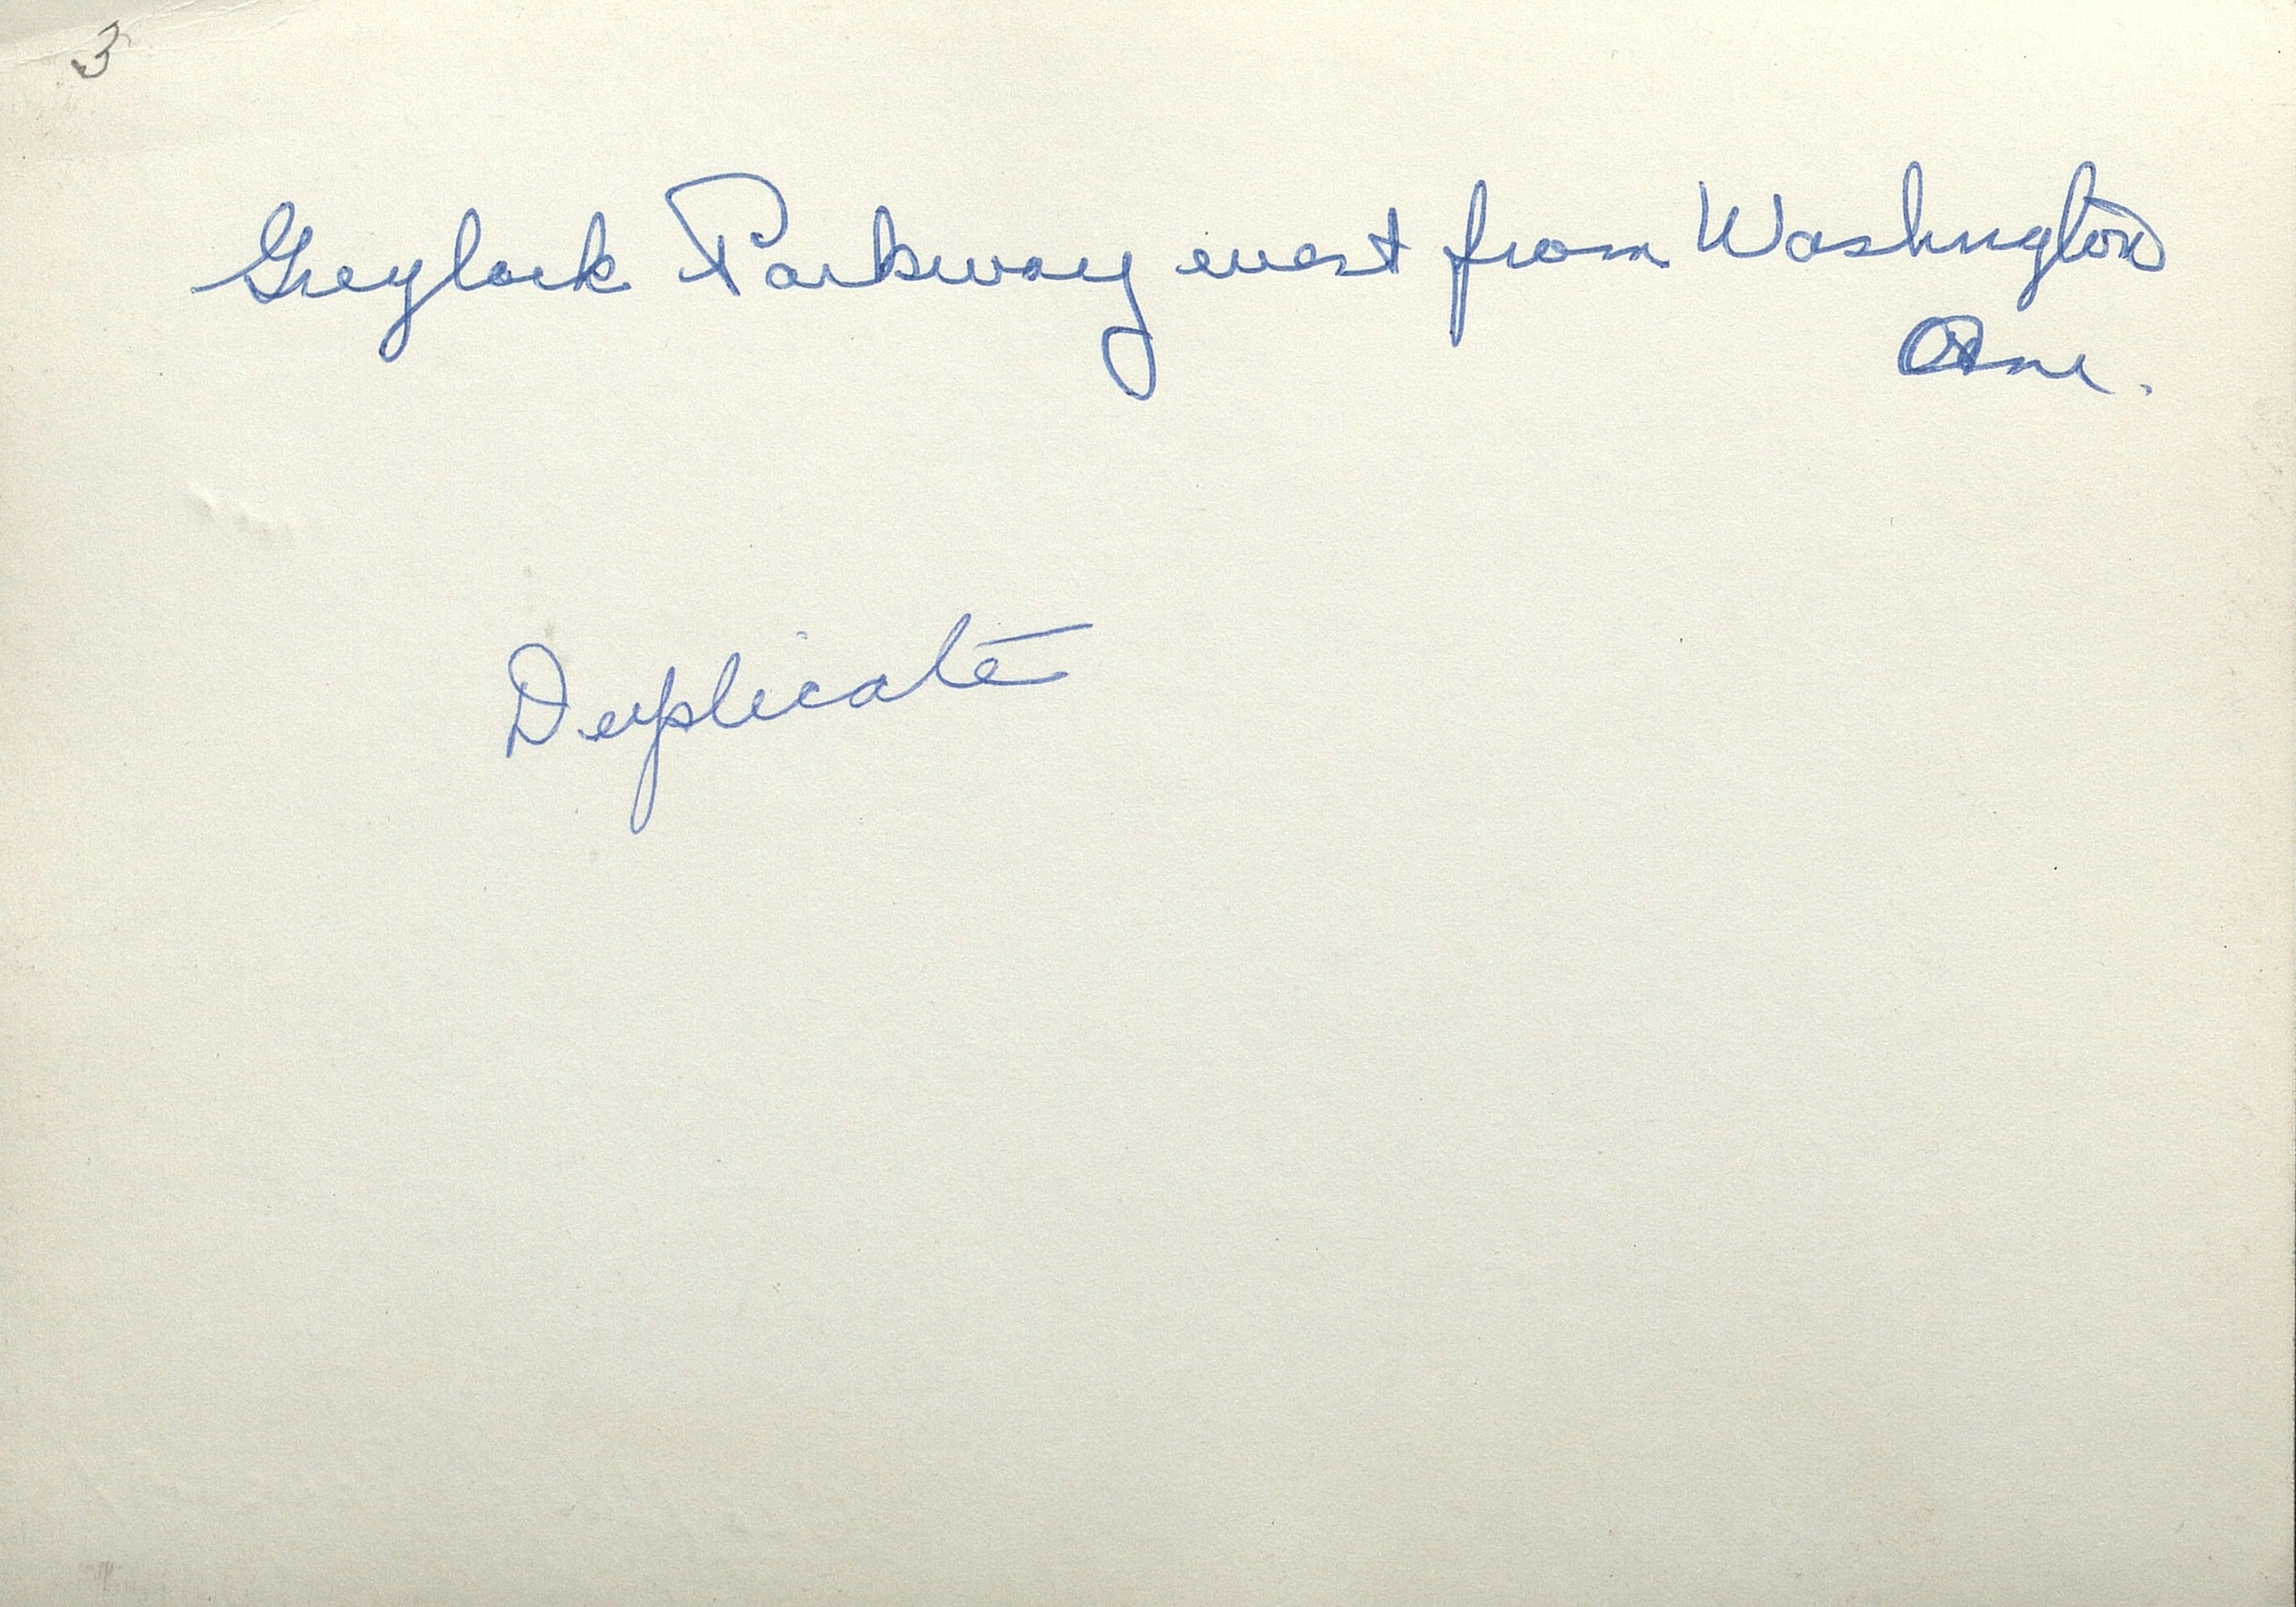 3
Greylock Parkway west from Washington
Ave.
Duplicate